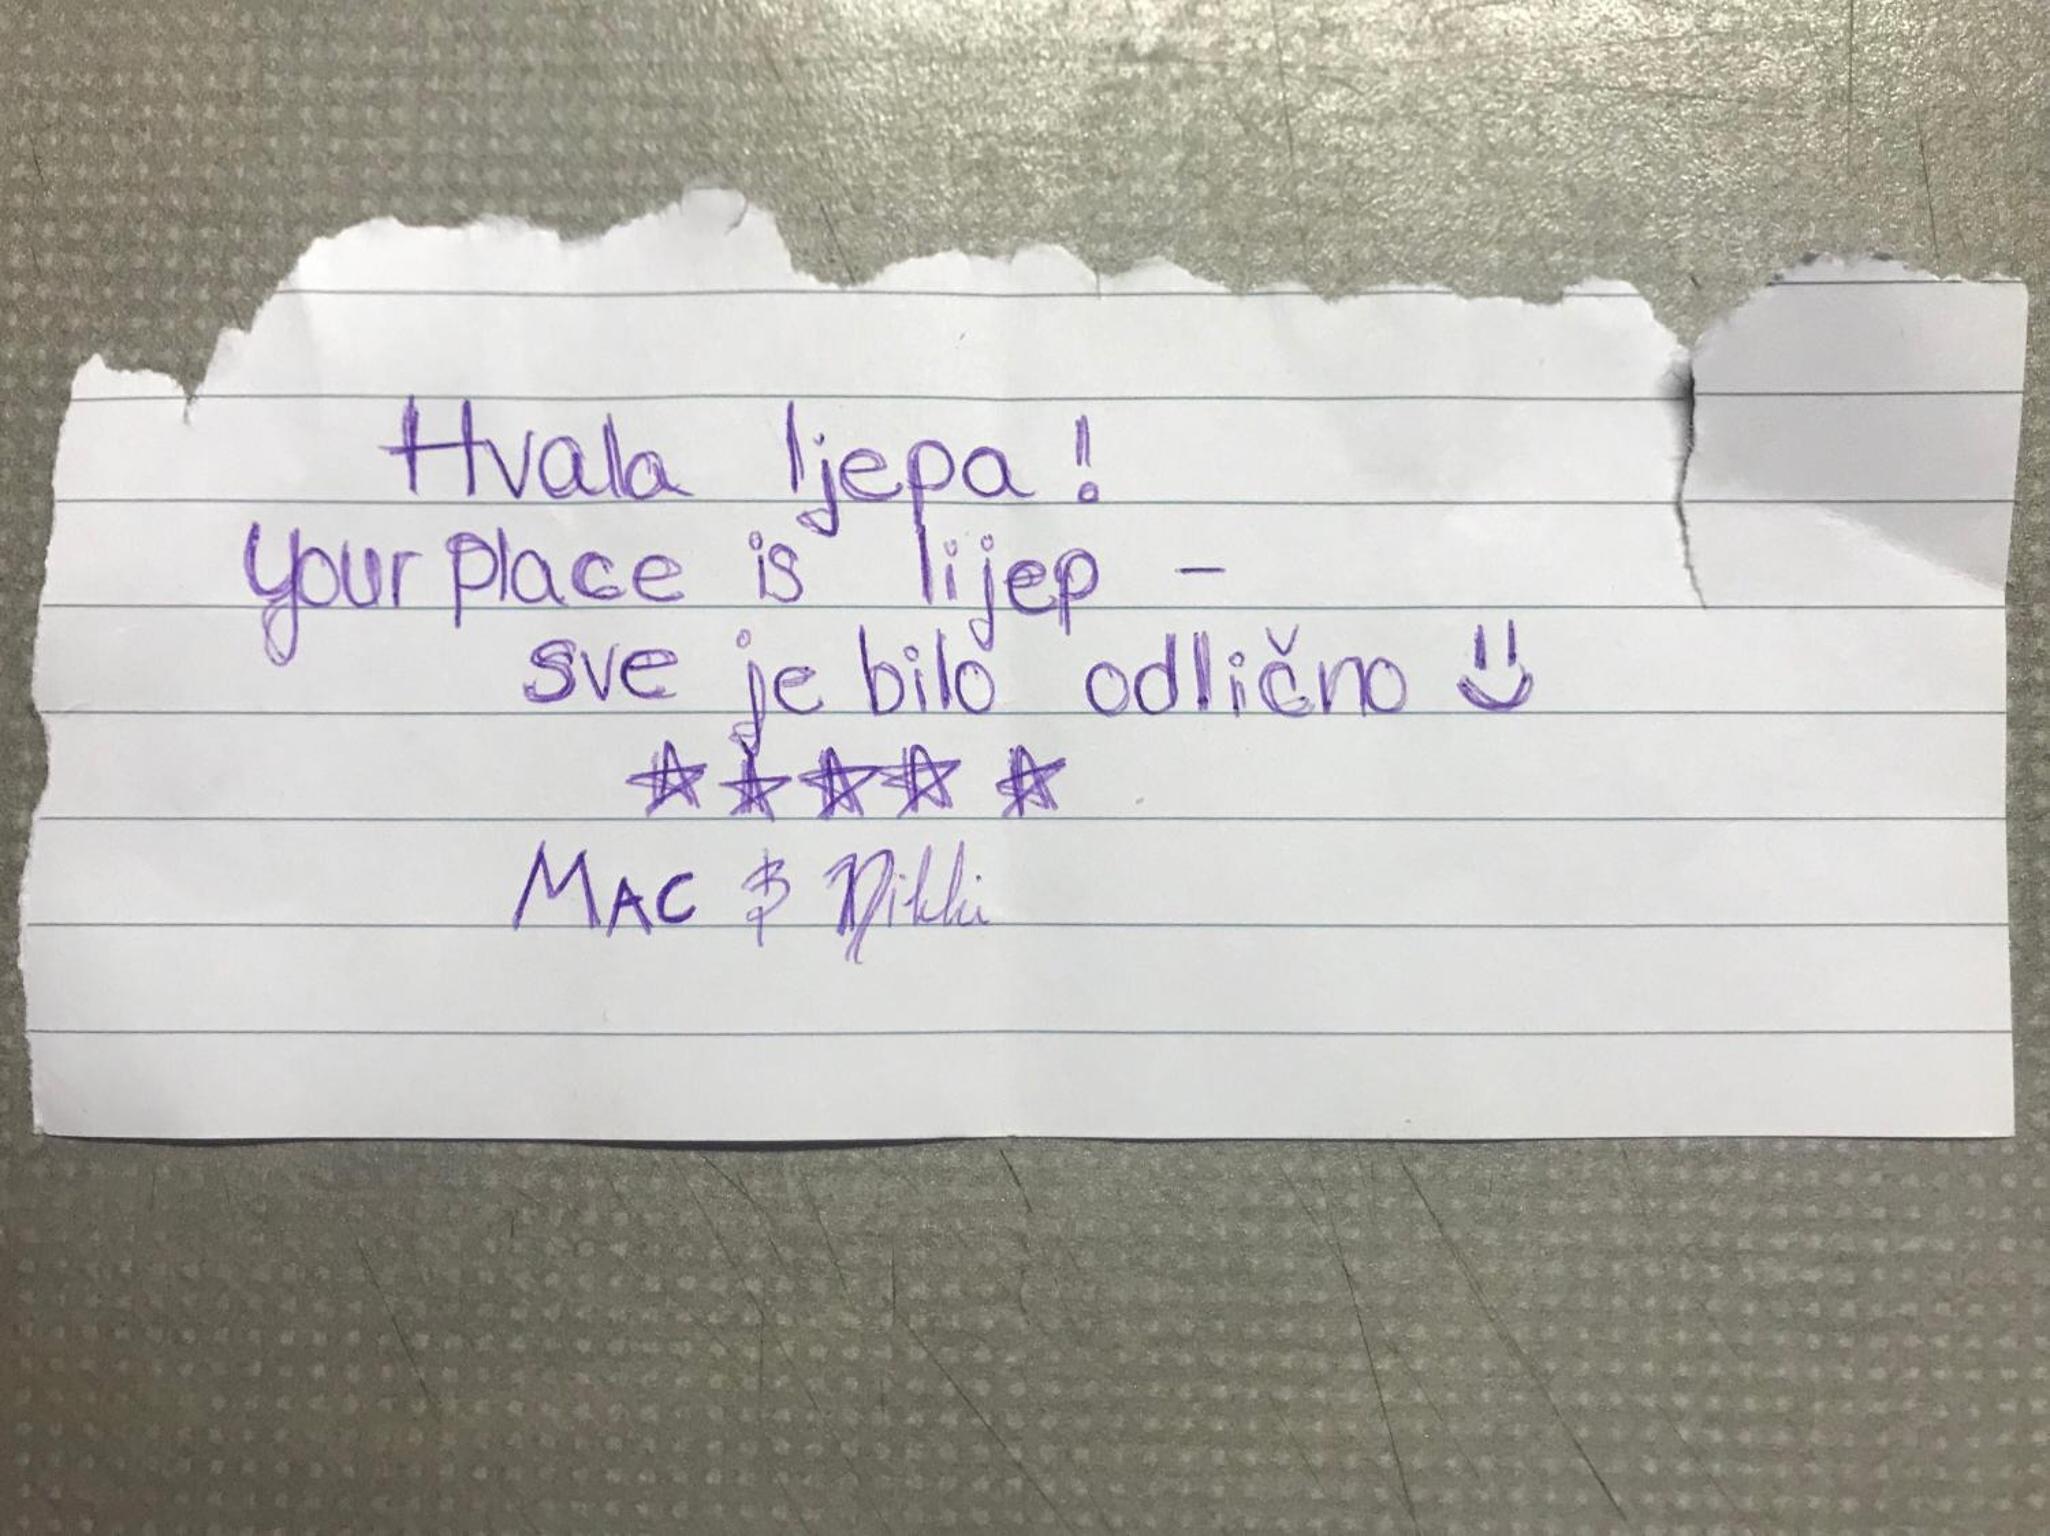 Hvala ljepa!
Your place is lijep -
sve je bilo odlično Ü
☆☆☆☆☆
MAC & Nikki